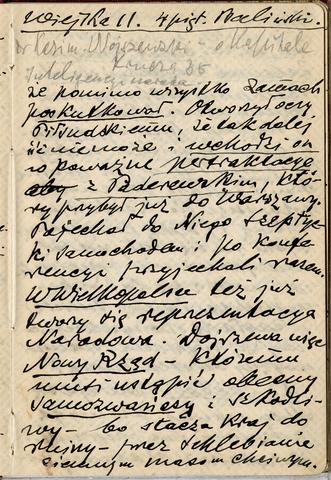 Wiejska 11. 4 pięt. Baliński.
Dr Kazim. Wójszewski - o Kapitale
Inteligencji
Krucza 36
że pomimo wszystko zamach
poskutkował. Otworzył oczy
Piłsudskiemu, że tak dalej
iść nie może i wchodzi on
w poważne pertraktacje
z Paderewskim, któ-
ry przybył już do Warszawy.
Pojechał do Niego Szeptyc-
ki samochodem i po konfe-
rencyi przyjechali razem.
W Wielkopolsce też już
tworzy się reprezentacja
Narodowa. Dojrzewa więc
Nowy Rząd - któremu
musi ustąpić obecny
samozwańczy i szkodli-
wy - bo stacza Kraj do
ruiny - przez schlebianie
ciemnym masom chciwym.